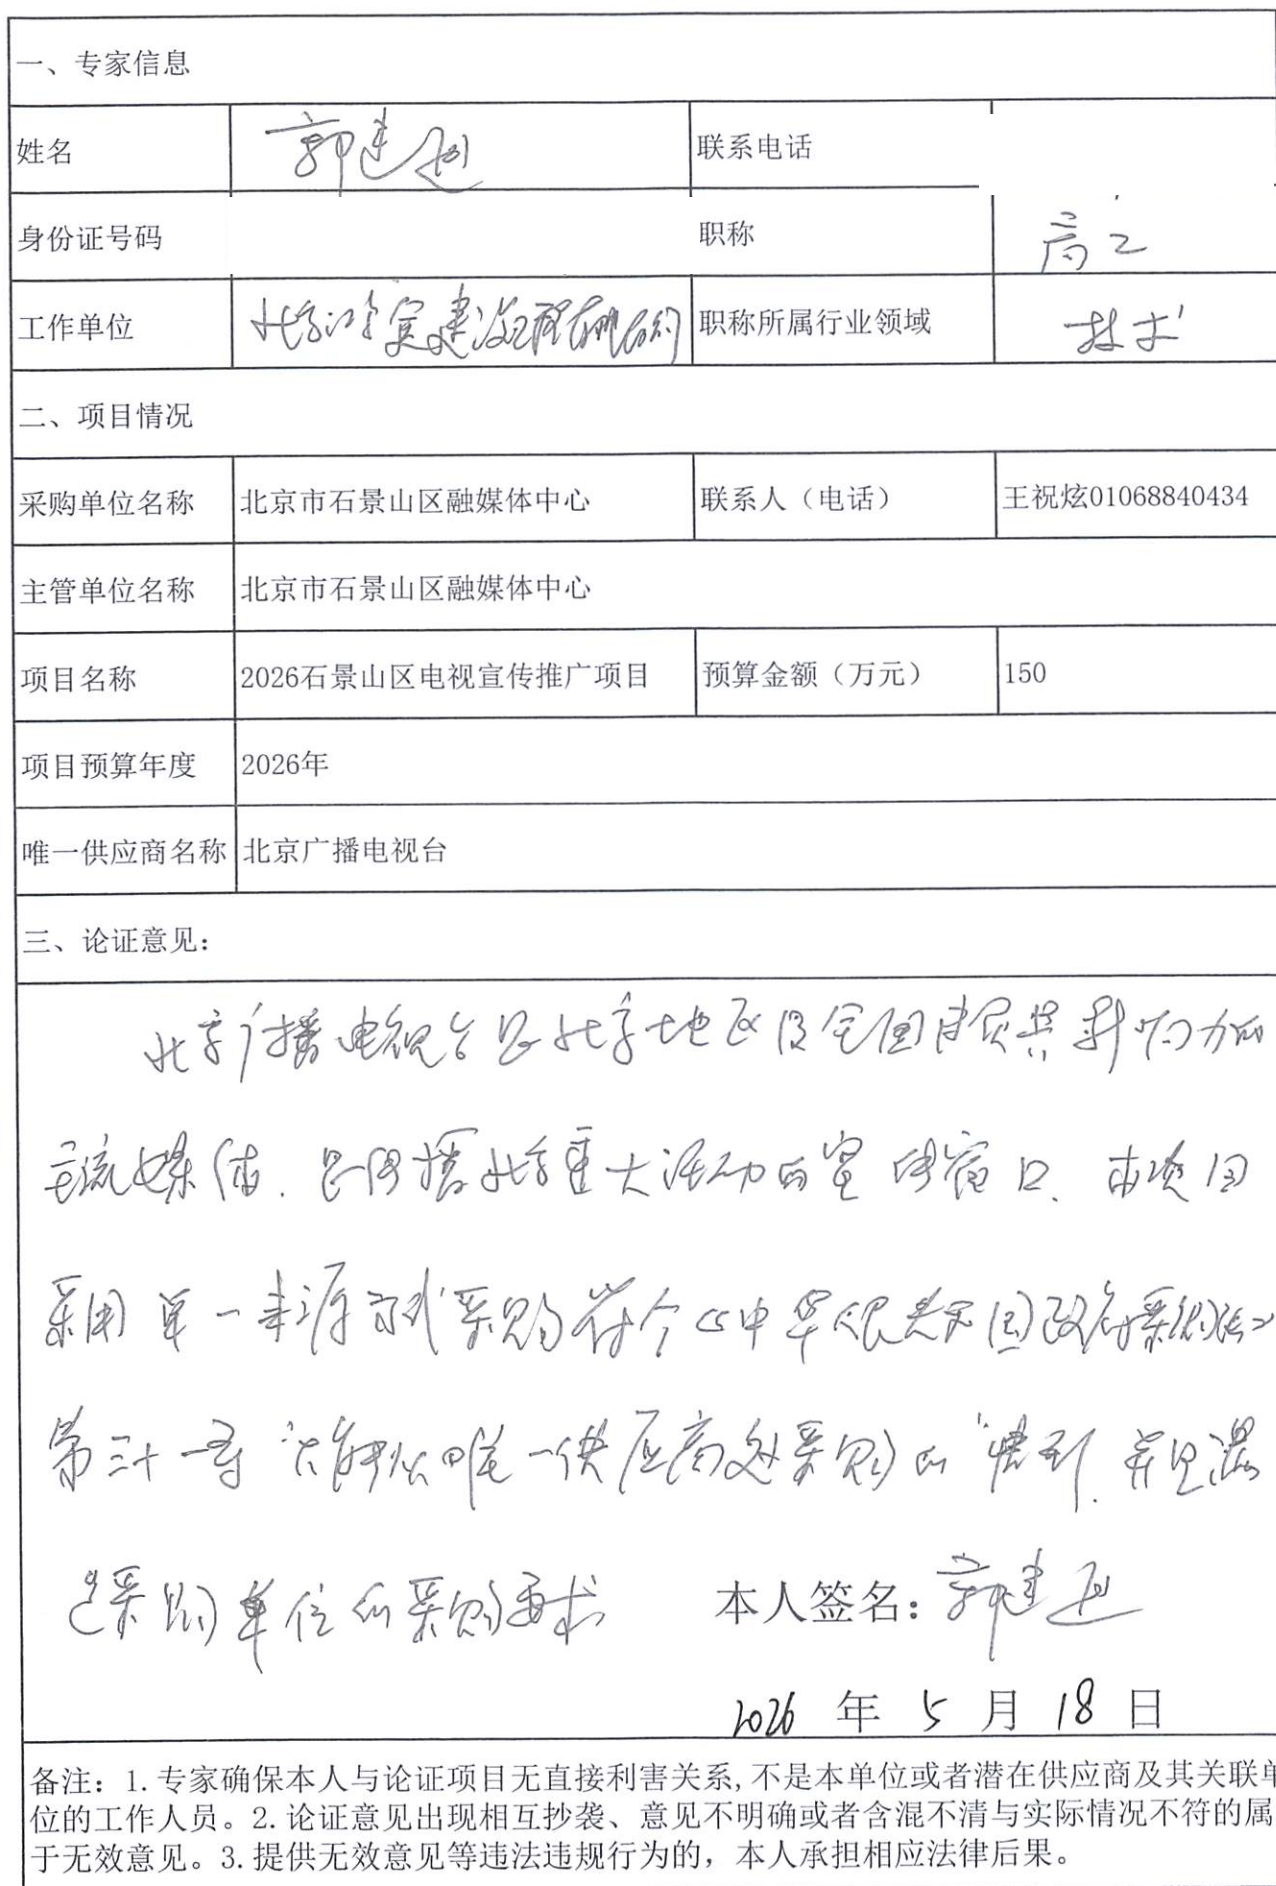 一、专家信息
姓名 郭建 联系电话
身份证号码 职称 高工
工作单位 北京 建设工程有限公司 职称所属行业领域 技术
二、项目情况
采购单位名称 北京市石景山区融媒体中心 联系人（电话） 王祝炫01068840434
主管单位名称 北京市石景山区融媒体中心
项目名称 2026石景山区电视宣传推广项目 预算金额（万元） 150
项目预算年度 2026年
唯一供应商名称 北京广播电视台
三、论证意见：
北京广播电视台是北京地区及全国 具影响力的
主流媒体. 是传播北京重大活动的宣传窗口. 本项目
采用单一来源方式采购符合《中华人民共和国政府采购法》
第三十一条“只能从唯一供应商处采购的”情形. 并且满
足采购单位的采购要求 本人签名：郭建
2026 年 5 月 18 日
备注：1.专家确保本人与论证项目无直接利害关系,不是本单位或者潜在供应商及其关联单
位的工作人员。2.论证意见出现相互抄袭、意见不明确或者含混不清与实际情况不符的属
于无效意见。3.提供无效意见等违法违规行为的，本人承担相应法律后果。